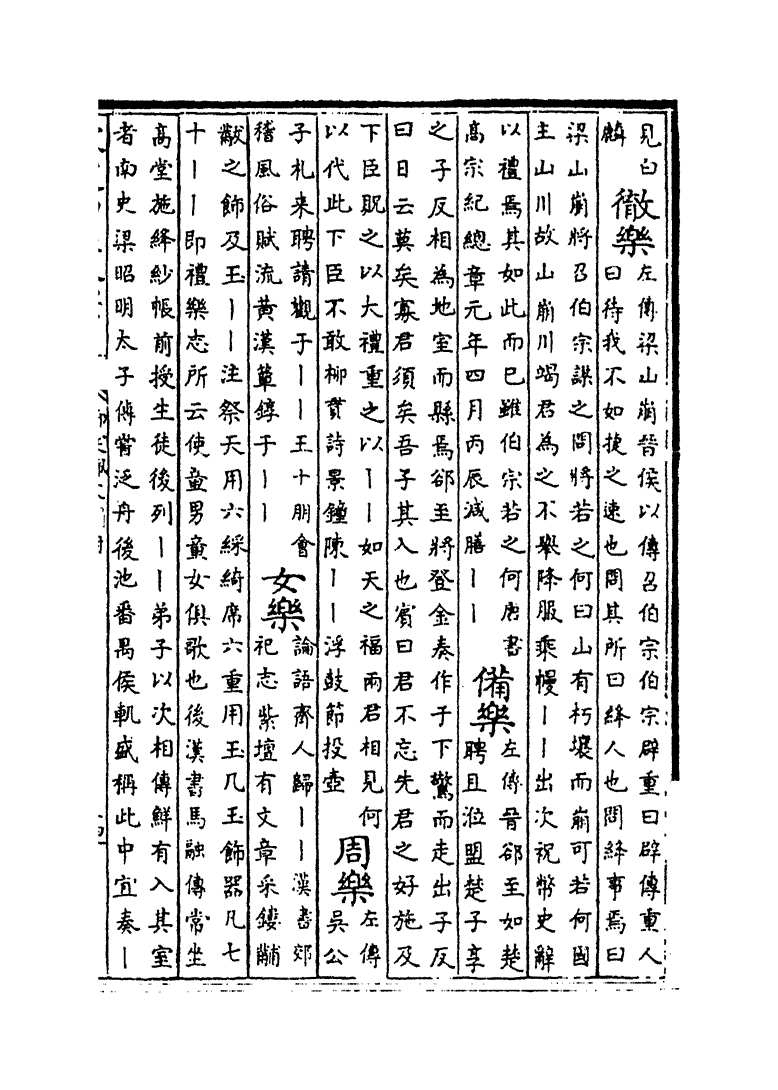 見臼
麟
徹樂
左傳梁山崩晉侯以傳召伯宗伯宗辟重曰辟傳重人
曰待我不如捷之速也問其所曰絳人也問絳事焉曰
梁山崩將召伯宗謀之問將若之何曰山有朽壤而崩可若何國
主山川故山崩川竭君為之不舉降服乘幔丨丨出次祝幣史辭
以禮焉其如此而已雖伯宗若之何唐書
髙宗紀總章元年四月丙辰減膳丨丨
備樂
左傳晉郤至如楚
聘且涖盟楚子享
之子反相為地室而縣焉郤至將登金奏作于下驚而走出子反
曰日云莫矣寡君須矣吾子其入也賓曰君不忘先君之好施及
下臣貺之以大禮重之以丨丨如天之福兩君相見何
以代此下臣不敢柳貫詩景鐘陳丨丨浮鼓節投壺
周樂
左傳
吳公
子札来聘請觀于丨丨王十朋會
稽風俗賦流黄漢簟錞于丨丨
女樂
論語齊人歸丨丨漢書郊
祀志紫壇有文章采鏤黼
黻之飾及玉丨丨注祭天用六綵綺席六重用玉几玉飾器凡七
十丨丨即禮樂志所云使童男童女俱歌也後漢書馬融傳常坐
髙堂施絳紗帳前授生徒後列丨丨弟子以次相傳鮮有入其室
者南史梁昭明太子傳嘗泛舟後池番禺侯軌盛稱此中宜奏丨